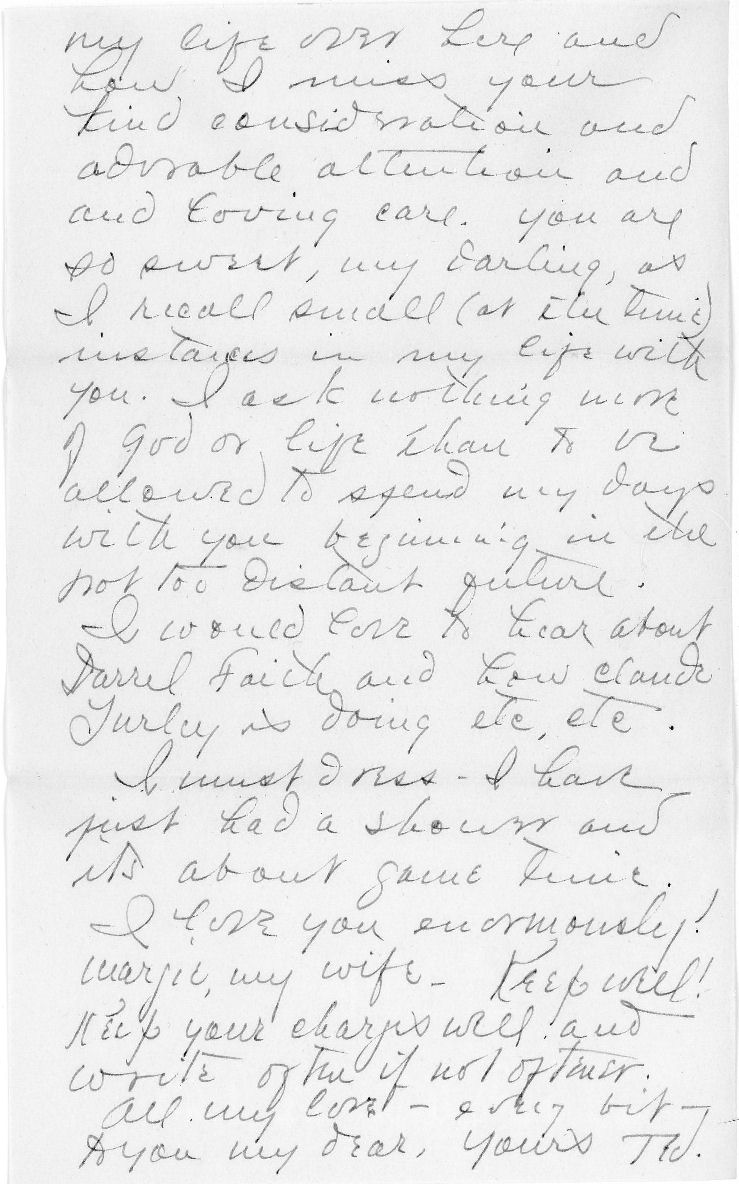 my life over here and
how I miss your
kind consideration and
adorable attention and
and loving care. you are
so sweet, my darling, as
I recall small (at the time)
instances in my life with
you. I ask nothing more
of God or life than to be
allowed to spend my days
with you beginning in the
not too distant future.
I would love to hear about
Darrel Faith and how Claude
Turley is doing etc, etc.
I must dress - I have
just had a shower and
it's about game time.
I love you enormously!
Margie, my wife - Keep well!
Keep your charges well and
write often if not oftener.
All my love - every bit -
to you my dear, yours Td.